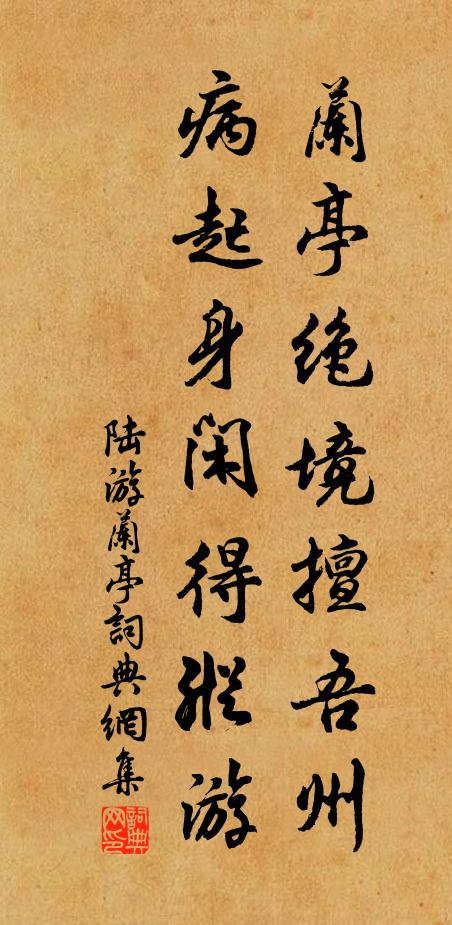 蘭亭絶境擅吾州
病起身閑得縱游
陸游蘭亭詞典網集
詞典网印